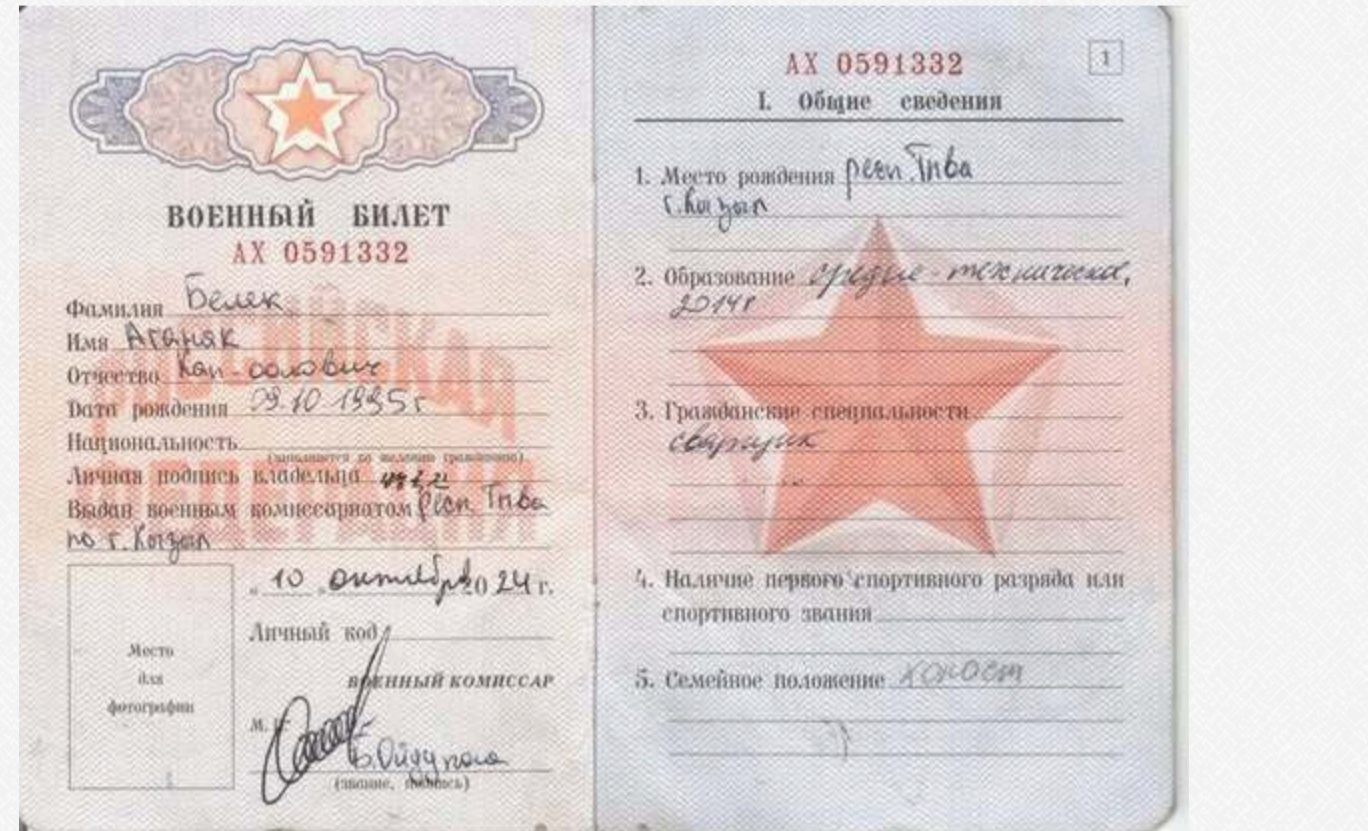 ВОЕННЫЙ БИЛЕТ
АХ 0591332
Фамилия Белек
Имя Аганяк
Отчество Кап-оолович
Дата рождения 09.10 1995г
Национальность
(заполняется по желанию гражданина)
Личная подпись владельца
Выдан военным комиссариатом Респ. Тыва
по г. Кызыл
РОССИЙСКАЯ
ФЕДЕРАЦИЯ
Место
для
фотографии
« 10 » октября 2024 г.
Личный код
ВОЕННЫЙ КОМИССАР
М.
(звание, подпись)
АХ 0591332
1
I. Общие сведения
1. Место рождения респ. Тыва
г. Кызыл
2. Образование средне-техническое,
2014г
3. Гражданские специальности
сварщик
4. Наличие первого спортивного разряда или
спортивного звания
5. Семейное положение холост